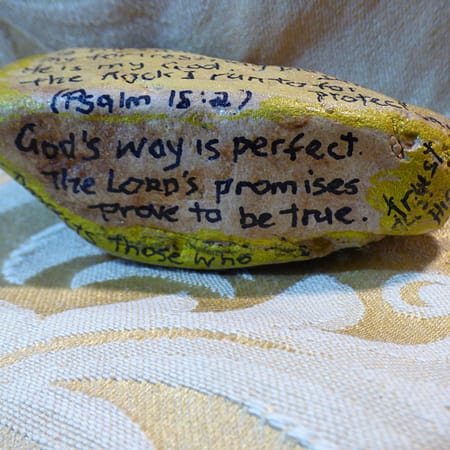 He is my God
the Rock I run to for
Protect
(Psalm 18:2)
God's way is perfect.
The LORD'S promises
prove to be true.
those who
trust